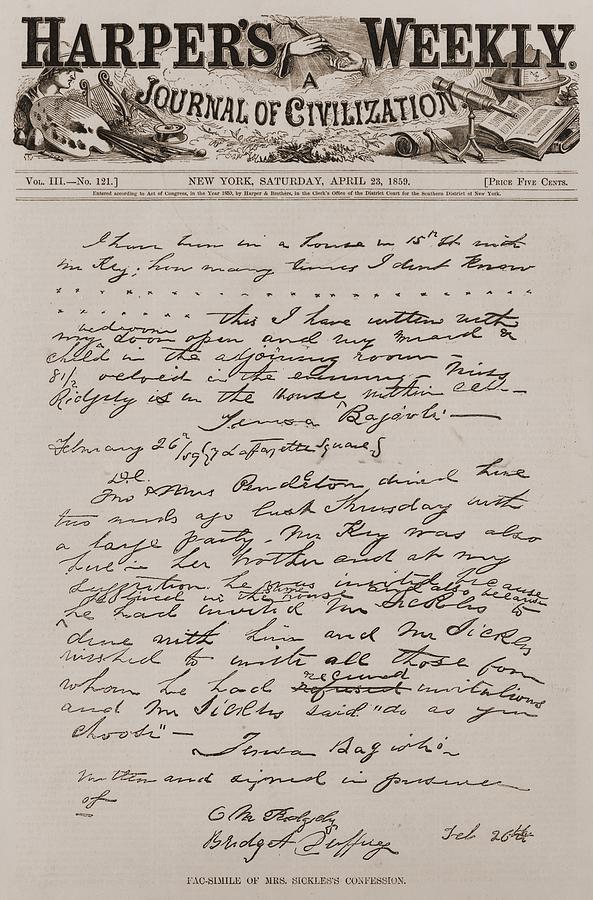 HARPER'S WEEKLY.
A
JOURNAL OF CIVILIZATION
VOL. III.—No. 121.] NEW YORK, SATURDAY, APRIL 23, 1859. [PRICE FIVE CENTS.
Entered according to Act of Congress, in the Year 1859, by Harper & Brothers, in the Clerk's Office of the District Court for the Southern District of New York.
I have been in a house in 15th St with
Mr Key; how many times I dont know
bedroom this I have written with
my door open and my maid &
child in the adjoining room —
8½ oclock in the evening — Miss
Ridgely is in the house within call —
Teresa Bagioli —
February 26th/59 Lafayette Square
D.C.
Mr & Mrs Pendleton dined here
two weeks ago last Thursday with
a large party. Mr Key was also
here is her brother and at my
suggestion he was invited because
he lived in the same house and also because
he had invited Mr Sickles to
dine with him and Mr Sickles
wished to invite all those from
whom he had refused received invitations
and Mr Sickles said "do as you
choose" —
Teresa Bagioli
Written and signed in presence
of
C M Ridgely
Bridget Duffey Feb 26th
FAC-SIMILE OF MRS. SICKLES'S CONFESSION.